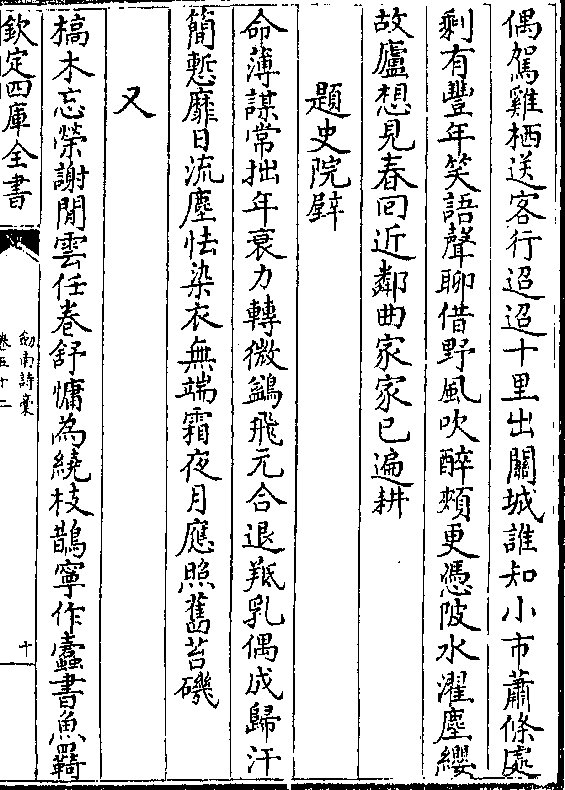 偶駕雞栖送客行迢迢十里出關城誰知小市蕭條處
剩有豐年笑語聲聊借野風吹醉頰更憑陂水濯塵纓
故廬想見春回近鄰曲家家已遍耕
題史院壁
命薄謀常拙年衰力轉微鷁飛元合退羝乳偶成歸汗
簡慙靡日流塵怯染衣無端霜夜月應照舊苔磯
又
槁木忘榮謝閒雲任卷舒慵為繞枝鵲寧作蠹書魚羇
欽定四庫全書
劒南詩稾
卷五十二
十